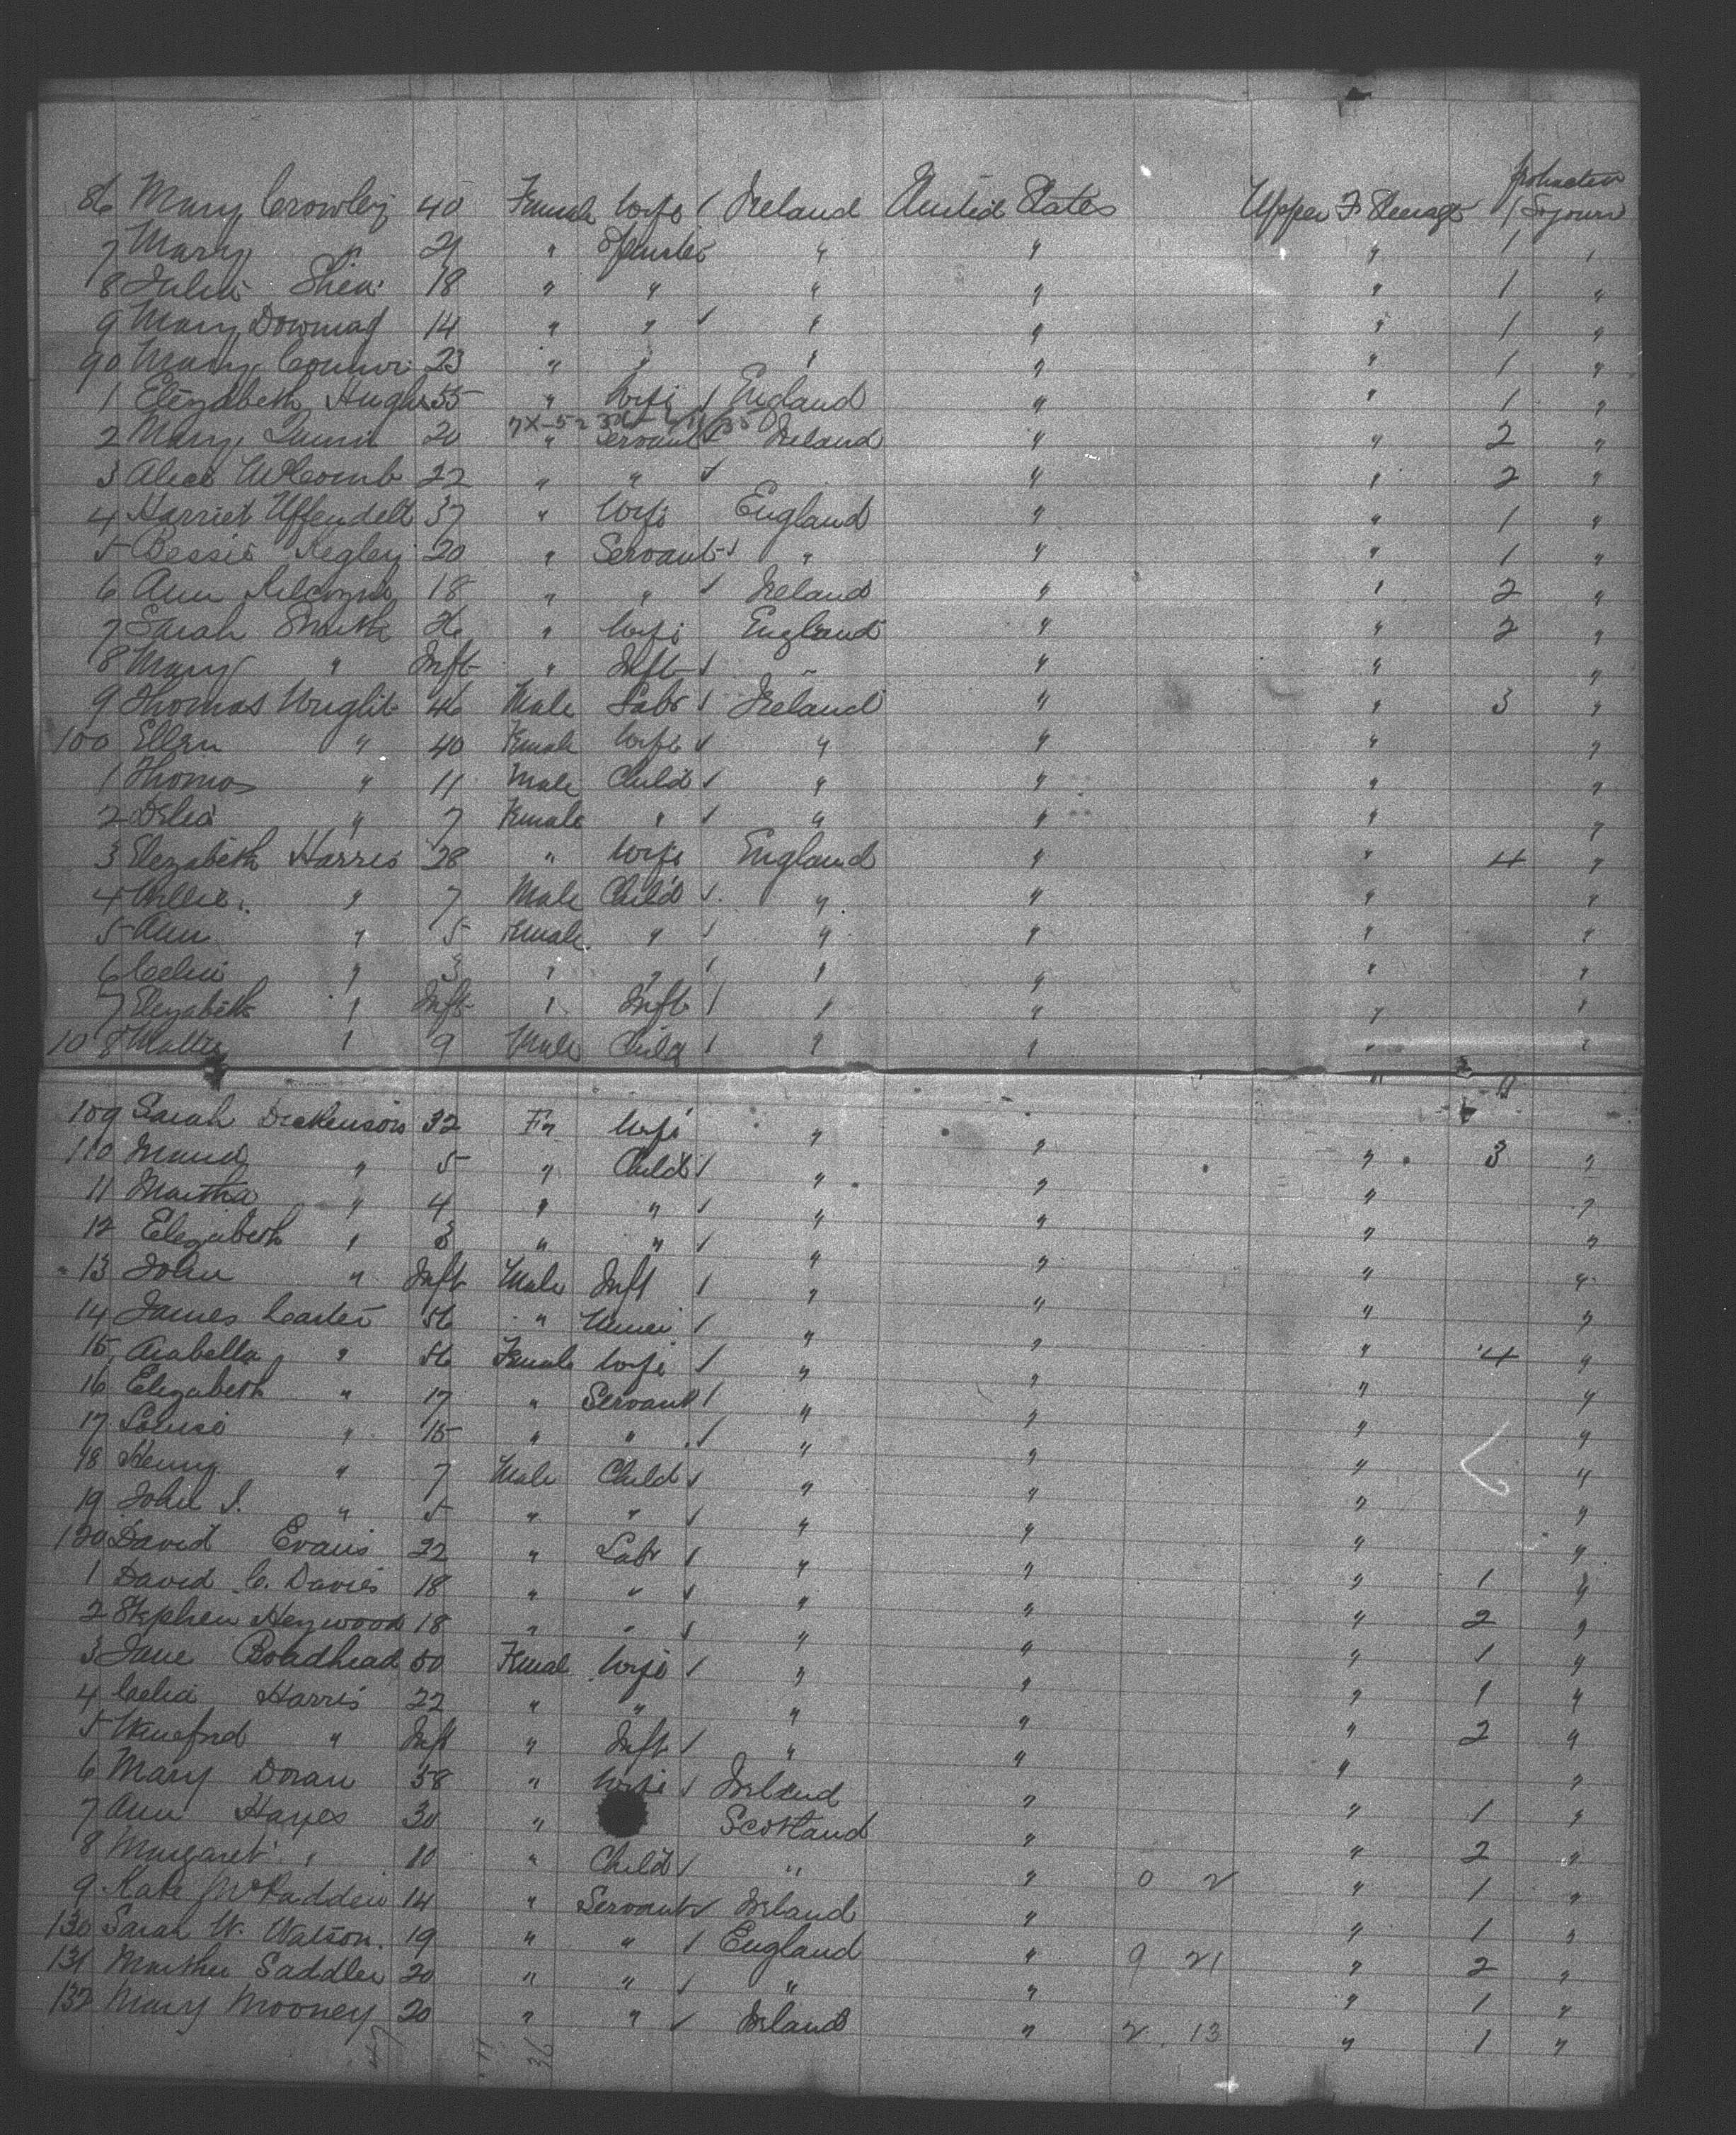 protracted
86 Mary Crowley 40 Female Wife / Ireland United States Upper F Steerage 1 Sojourn
7 Mary " 21 " Spinster " " " 1 "
8 Julia Shea 18 " " " " " 1 "
9 Mary 14 " " ✓ " " " 1 "
90 Mary 23 " " " " " 1 "
1 Elizabeth Hughes 55 " Wife / England " " 1 "
2 Mary 20 " Servant ✓ Ireland " " 2 "
3 Alice McComb 22 " " ✓ " " 2 "
4 Harriet Uffendell 37 " Wife England " " 1 "
5 Bessie Kegley 20 " Servant ✓ " " " 1 "
6 Ann 18 " " ✓ Ireland " " 2 "
7 Sarah Smith 26 " Wife England " " 2 "
8 Mary " Inft " Inft ✓ " " " "
9 Thomas Wright 46 Male Labr ✓ Ireland " " 3 "
100 Ellen " 40 Female Wife ✓ " " " "
1 Thomas " 11 Male Child ✓ " " " "
2 Delia " 7 Female " ✓ " " " "
3 Elizabeth Harris 28 " Wife England " " 4 "
4 Willie " 7 Male Child ✓ " " " "
5 Ann " 5 Female " ✓ " " " "
6 Celia " 3 " " / " " " "
7 Elizabeth " Inft " Inft / " " " "
108 Walter " 9 Male Child / " " " "
109 Sarah Dickenson 32 Fe Wife " " " 3 "
110 Maud " 5 " Child / " " " "
11 Martha " 4 " " / " " " "
12 Elizabeth " 3 " " / " " " "
13 John " Inft Male Inft / " " " "
14 James Carter 56 " Miner / " " " 4 "
15 Arabella " 56 Female Wife / " " " "
16 Elizabeth " 17 " Servant / " " " "
17 Louisa " 15 " " / " " " "
18 Henry " 7 Male Child ✓ " " " "
19 John S. " 5 " " ✓ " " " "
120 David Evans 22 " Labr / " " " 1 "
1 David C. Davies 18 " " ✓ " " " 2 "
2 Stephen Heywood 18 " " ✓ " " " 1 "
3 Jane Boadhead 50 Femal Wife / " " " 1 "
4 Celia Harris 22 " " " " " 2 "
5 Winefred " Inft " Inft / " " " "
6 Mary Doran 58 " Wife ✓ Ireland " " 1 "
7 Ann Hayes 30 " Scotland " " 2 "
8 Margaret " 10 " Child / " " 0 2 " 1 "
9 Kate McFadden 14 " Servant ✓ Ireland " " 1 "
130 Sarah W. Watson. 19 " " / England " 9 21 " 2 "
131 Marther Saddler 20 " " ✓ " " " 1 "
132 Mary Mooney 20 " " ✓ Ireland " 2 13 " 1 "
36